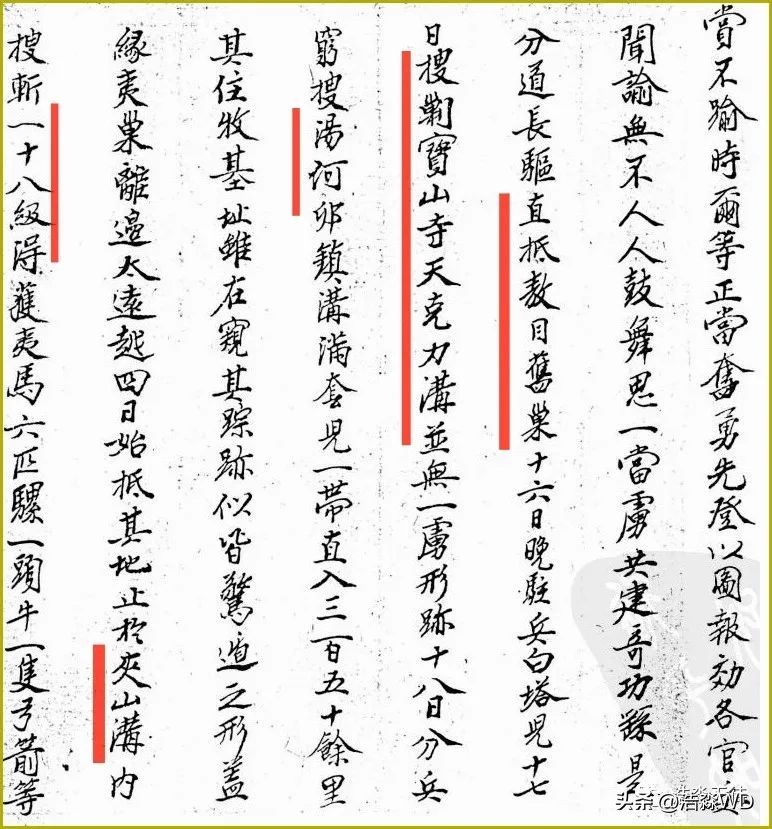 賞不踰時爾等正當奮勇先登以圖報効各官
聞諭無不人人鼓舞思一當虜共建奇功繇是
分道長驅直抵敖目舊巢十六日晚駐兵白塔兒十七
日搜剿寶山寺天克力溝並無一虜形跡十八日分兵
窮搜湯河卯鎮溝滿套兒一帶直入三百五十餘里
其住牧基址雖在窺其踪跡似皆驚遁之形蓋
緣夷巢離邊太遠越四日始抵其地止於夾山溝內
搜斬一十八級得獲夷馬六匹騾一頭牛一隻弓箭等
头条@浩淼WD